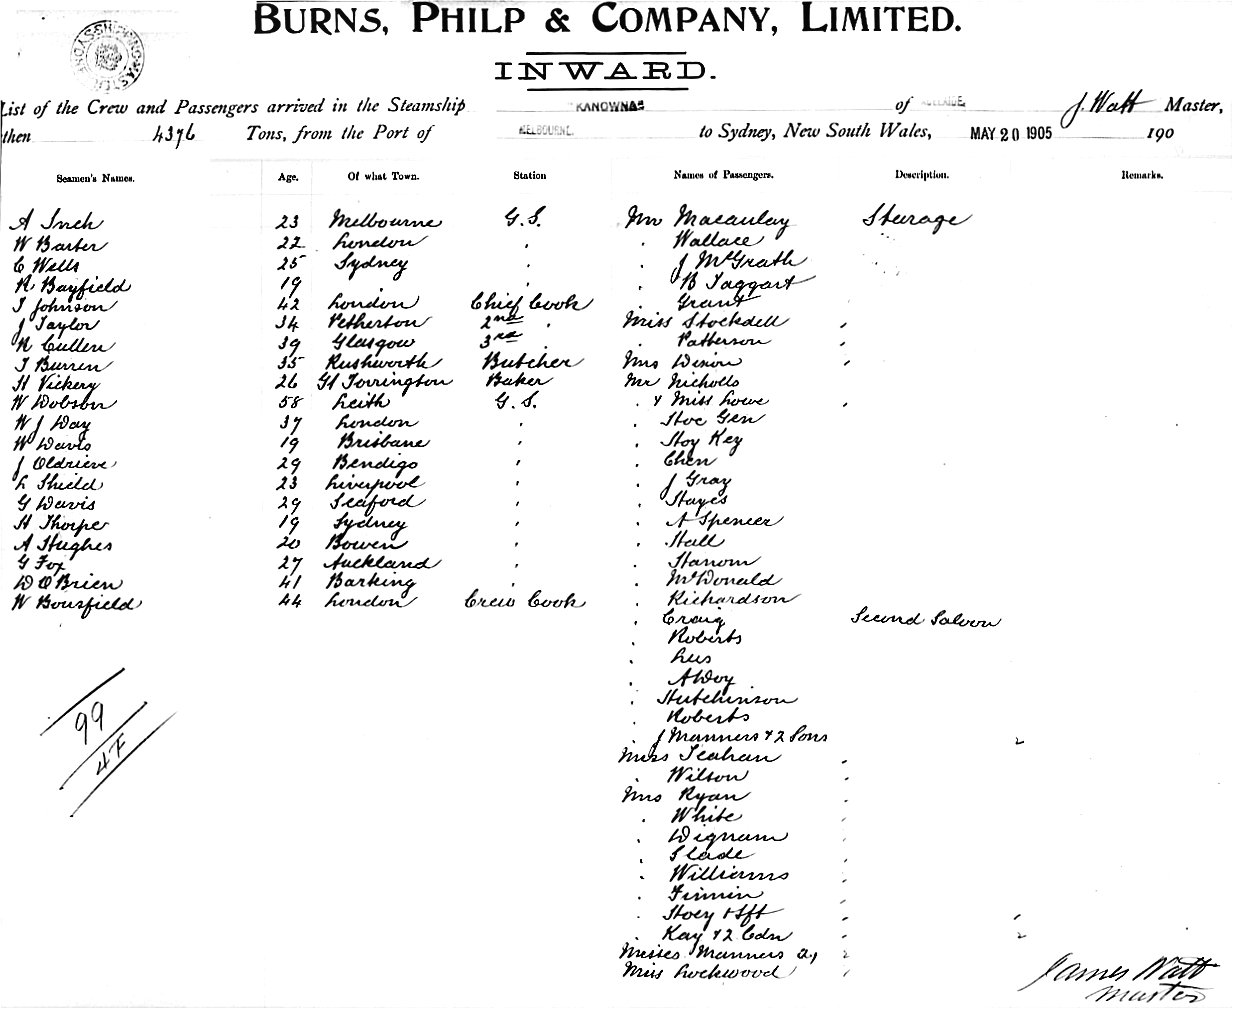 BURNS, PHILP & COMPANY, LIMITED.
INWARD.
List of the Crew and Passengers arrived in the Steamship KANOWNA of ADELAIDE, J. Watt Master,
then 4376 Tons, from the Port of MELBOURNE. to Sydney, New South Wales, MAY 20 1905 190
Seamen's Names. Age. Of what Town. Station Names of Passengers. Description. Remarks.
A Inch 23 Melbourne G.S. Mr Macaulay Sturage
W Barter 22 London " Wallace
C Wells 25 Sydney " J McGrath
R Bayfield 19 " B Taggart
T Johnson 42 London Chief Cook " Grant
J Taylor 34 Petherton 2nd " Miss Stockdell "
R Cullen 39 Glasgow 3rd " " Patterson "
T Burren 35 Rushworth Butcher Mrs "
H Vickery 26 Gt Torrington Baker Mr Nicholls
W Dobson 58 Leith G.S. " & Miss Lowe "
W J Way 37 London " " Hoc Gen
W Davis 19 Brisbane " " Hoy Key
J Oldrieve 29 Bendigo " " Chen
L Shield 23 Liverpool " " J Gray
G Davis 29 Seaford " " Hayes
H Thorpe 19 Sydney " " A Spencer
A Hughes 20 Bowen " " Hall
G Fox 27 Auckland " " Hanom
D O'Brien 41 Barking " " McDonald
W Bousfield 44 London Crew Cook " Richardson
" Craig Second Saloon
" Roberts
" Lus
" A Woy
" Hutchinson
" Roberts
" J Manners & 2 Sons 2
Miss Teahan "
" Wilson "
Mrs Ryan "
" White "
" Wignam "
" Slade "
" Williams "
" Firmin "
" Hoey & Ift " "
" Kay & 2 Cdn " 2
Misses Manners 2, 2
Miss Lockwood "
99
47
James Watt
Master